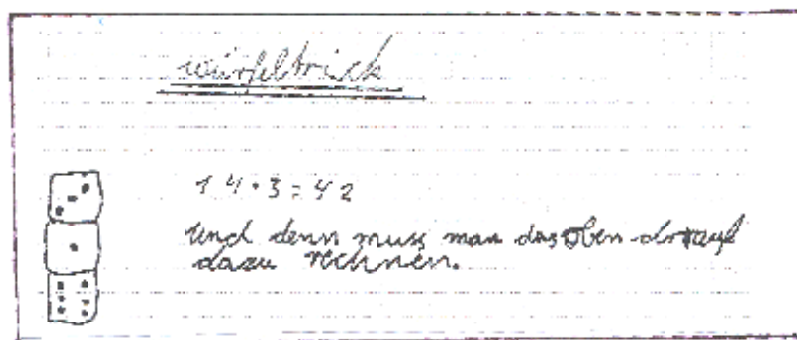 würfeltrick
14·3=42
und denn muss man das oben drauf
dazu rechnen.